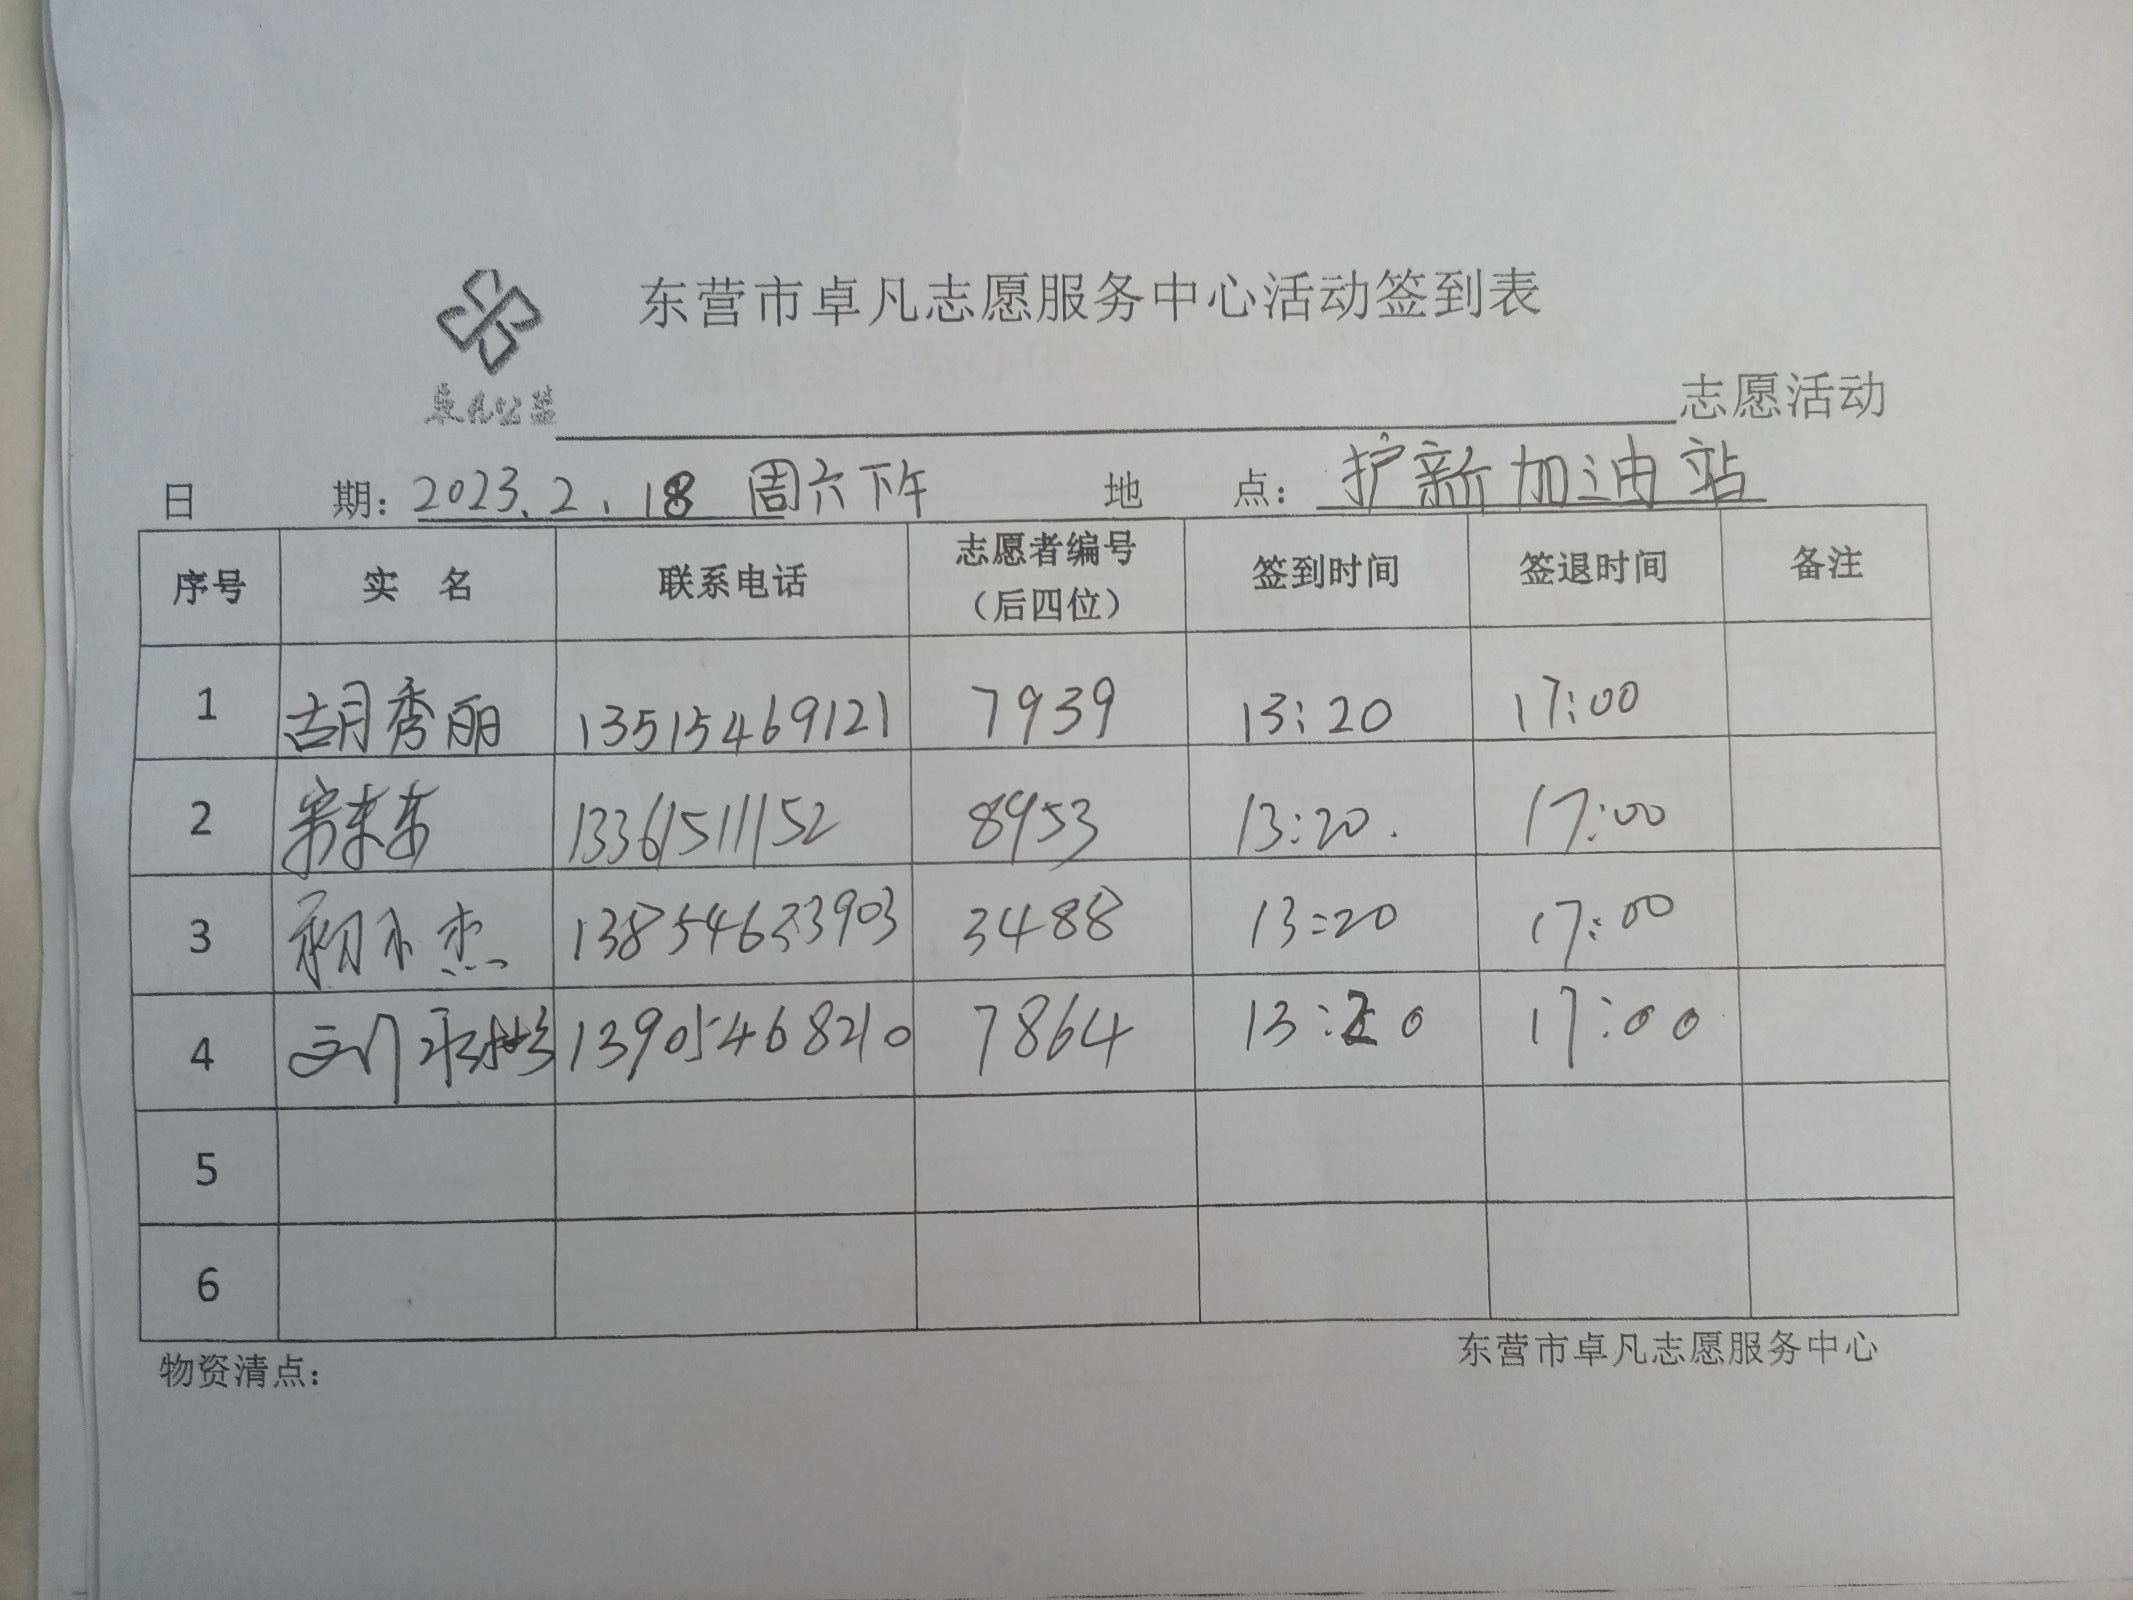 东营市卓凡志愿服务中心活动签到表
卓凡公益
志愿活动
日 期：2023.2.18 周六下午 地 点：护新加油站
序号 实 名 联系电话 志愿者编号（后四位） 签到时间 签退时间 备注
1 胡秀丽 13515469121 7939 13:20 17:00
2 13361511152 8953 13:20. 17:00
3 杰 13854633903 3488 13:20 17:00
4 刘 13905468210 7864 13:20 17:00
5
6
物资清点： 东营市卓凡志愿服务中心